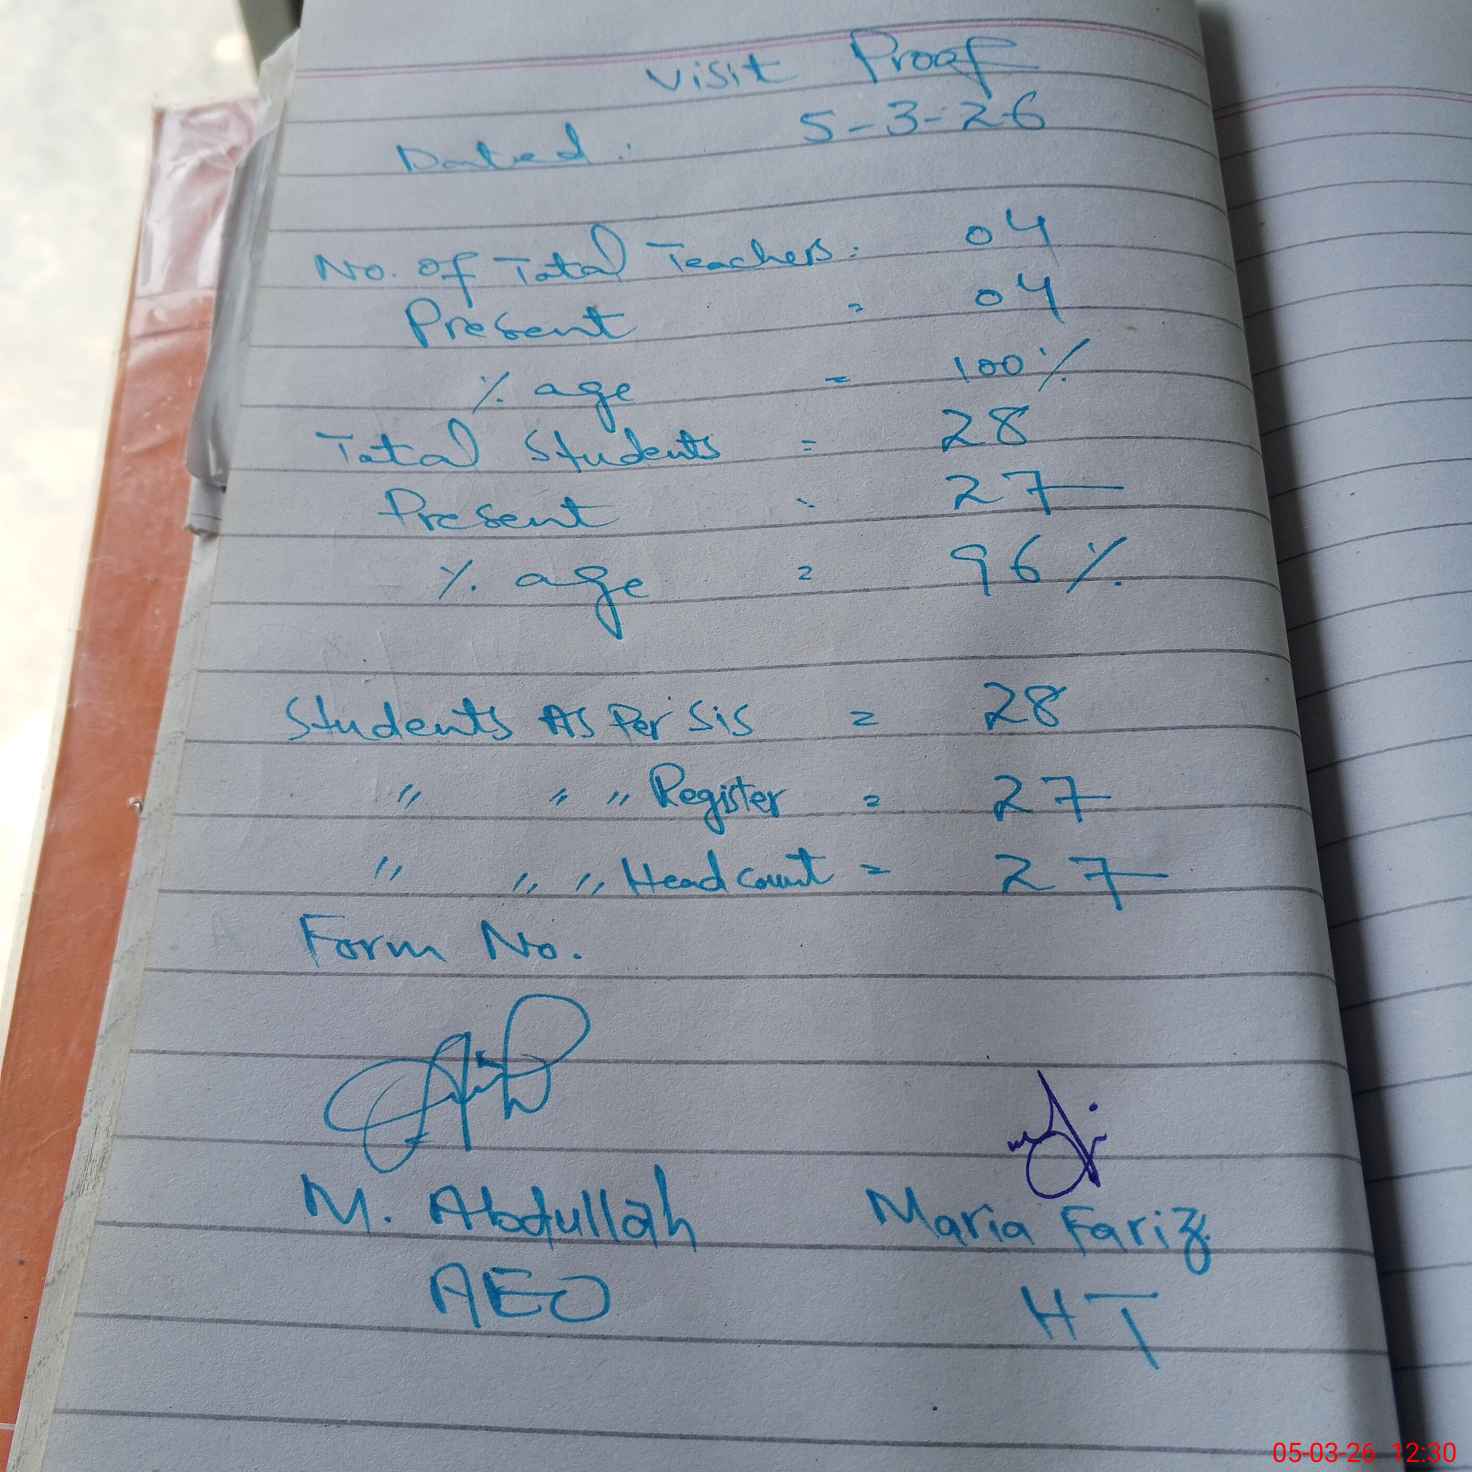 Visit Proof
Dated: 5-3-26
No. of Total Teachers: 04
Present = 04
% age = 100%
Total Students = 28
Present : 27
% age = 96%
Students As Per Sis = 28
" " " Register = 27
" " " Head count = 27
Form No.
M. Abdullah Maria Fariz
AEO HT
05-03-26 12:30